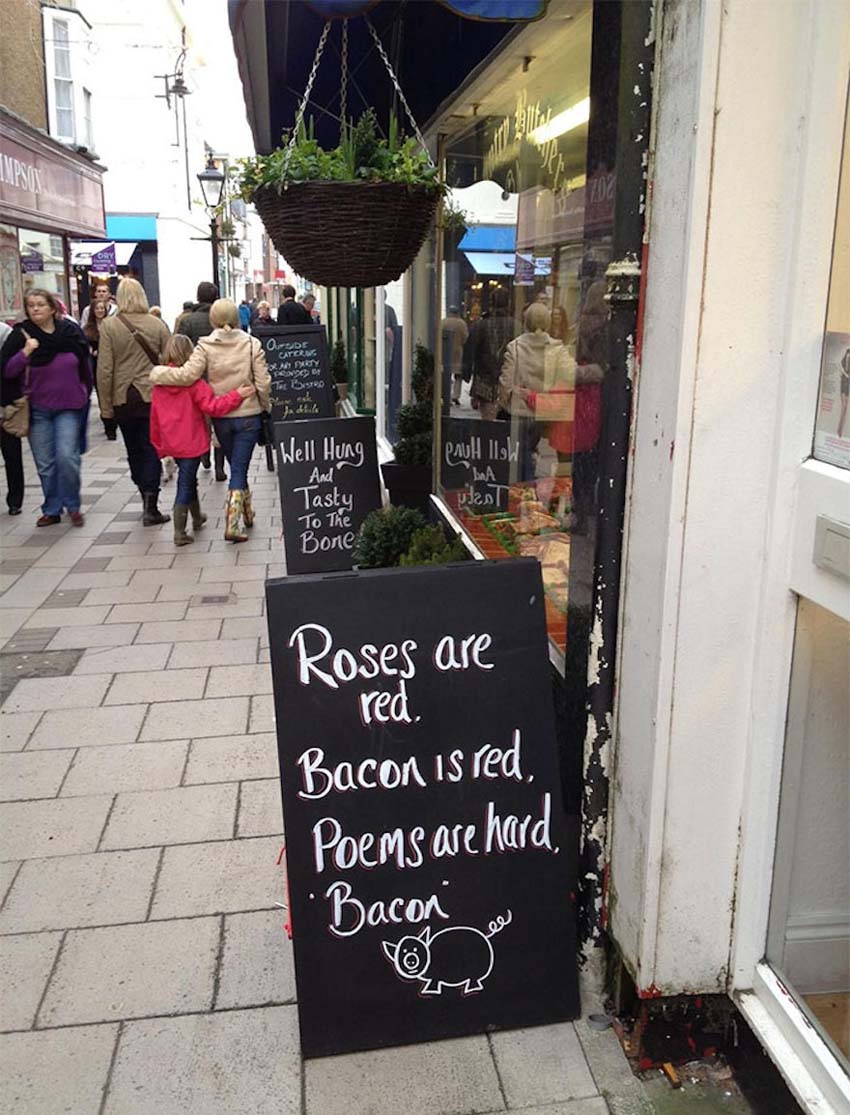 Roses are
red.
Bacon is red.
Poems are hard.
"Bacon"
Well Hung
And
Tasty
To The
Bone
Outside
Catering
For Any Party
Provided By
The Bistro
Please ask
for details
IMPSON
DRY